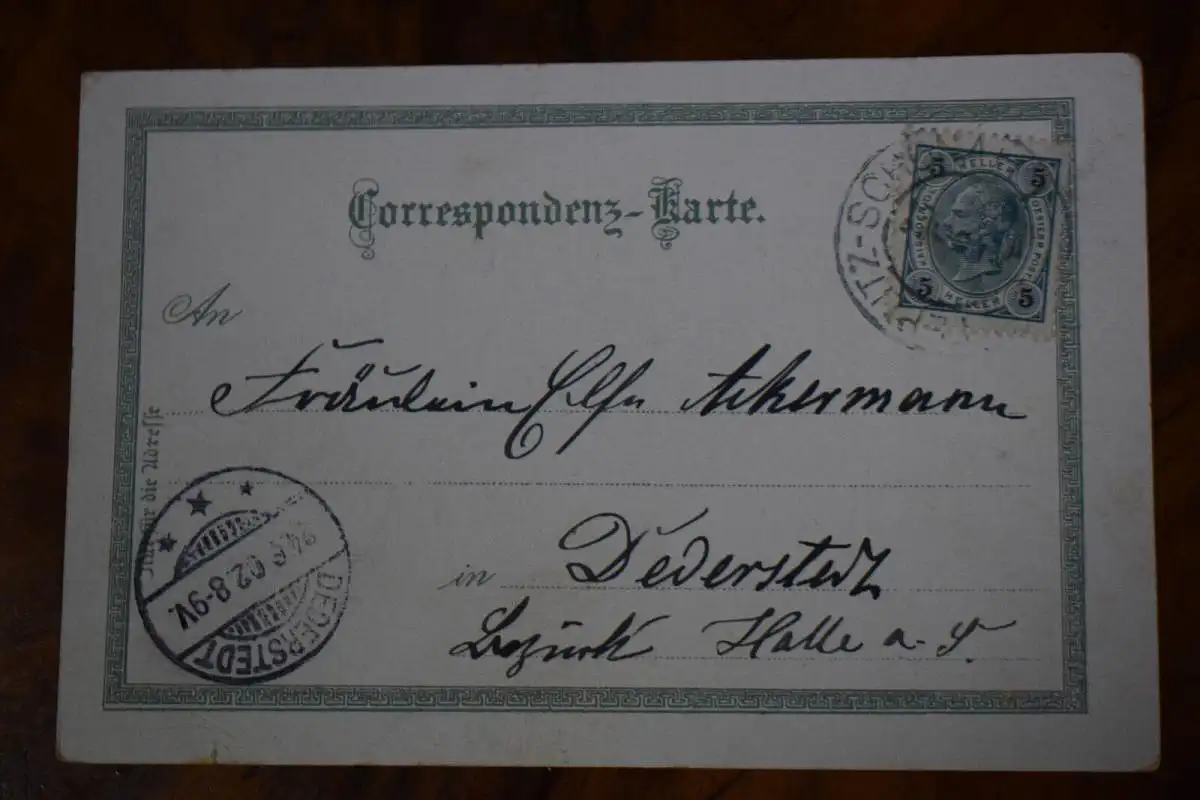 Correspondenz-Karte.
5 HELLER 5
KAIS. KOEN. OESTERR. POST.
5 HELLER 5
ITZ-SCH
An
Fräulein Else Ackermann
Nur für die Adresse
in Dederstedt
Bezirk Halle a. S.
DEDERSTEDT
24.6.02.8-9V.